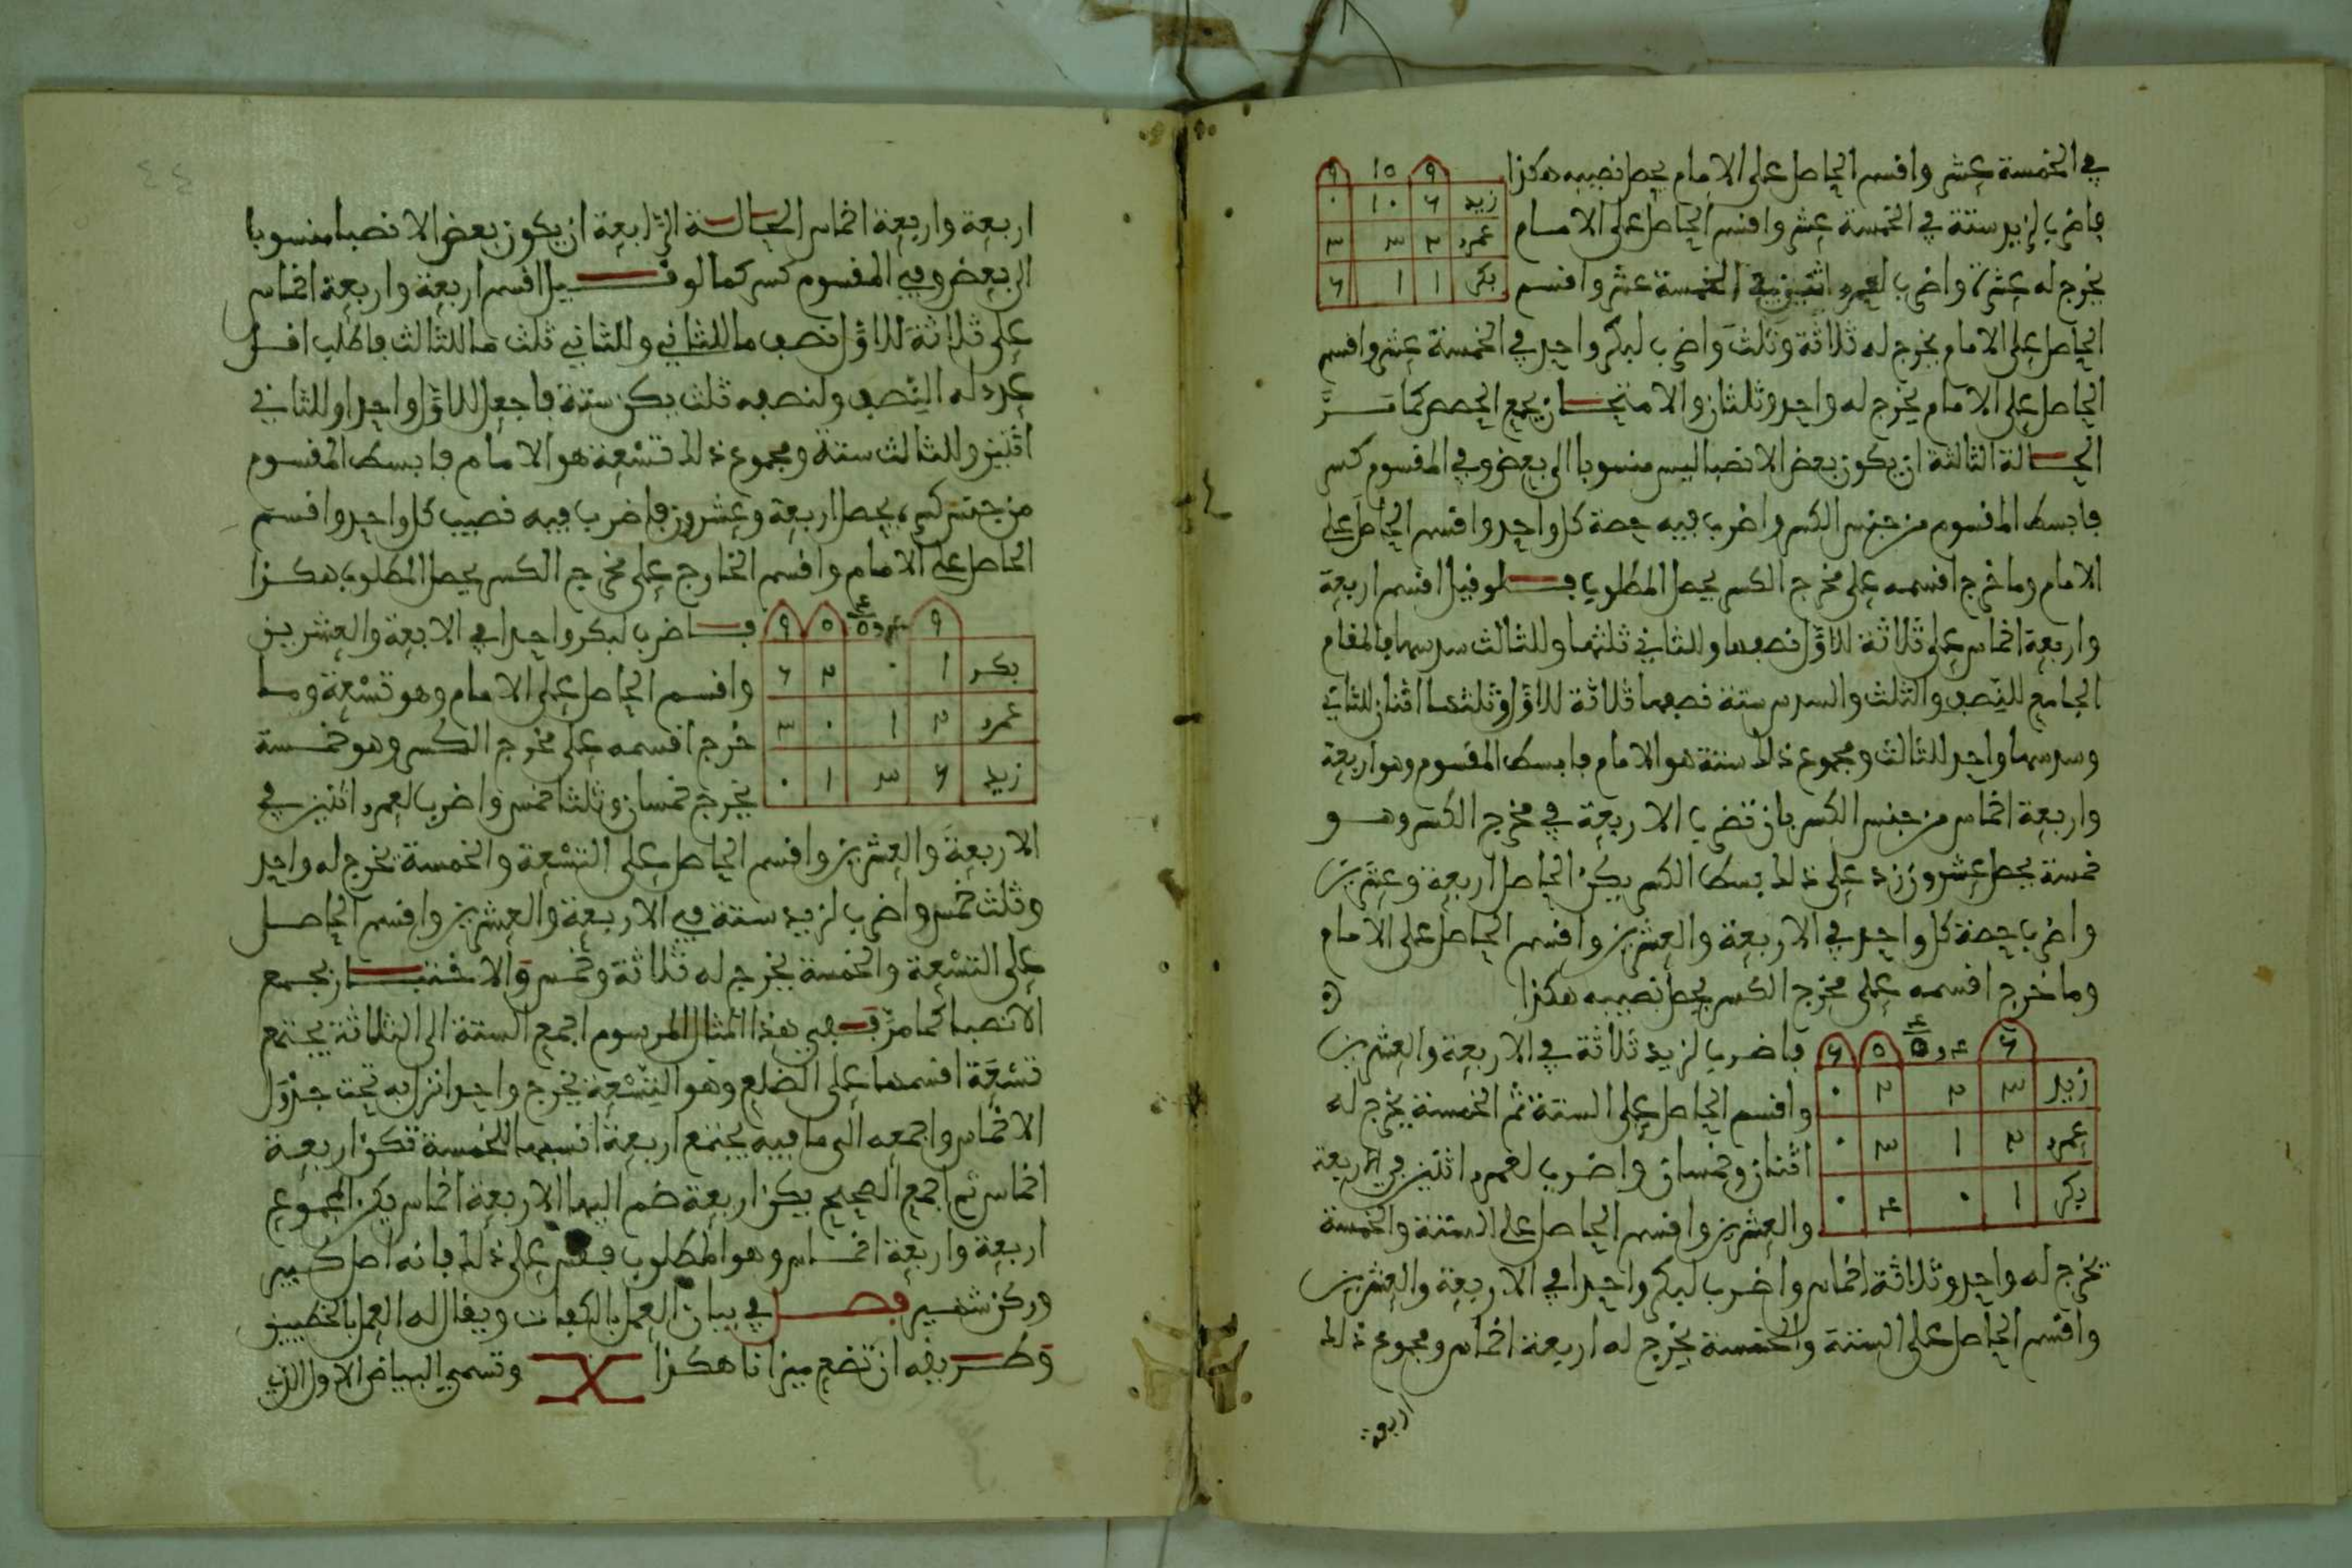 في الخمسة عشر واقسم الحاصل على الامام يحصل نصيبه هكذا
٩ ١٥ ٩
زيد ٦ ١٠ ٠
عمرو ٢ ٣ ٣
بكر ١ ١ ٦
فاضرب لزيد ستة في الخمسة عشر واقسم الحاصل على الامام
يخرج له عشرة واضرب لعمرو اثنين في الخمسة عشر واقسم
الحاصل على الامام يخرج له ثلاثة وثلث واضرب لبكر واحد في الخمسة عشر واقسم
الحاصل على الامام يخرج له واحد وثلثان والامتحان بجمع الحصص كما مر
الحالة الثالثة ان يكون بعض الانصبا ليس منسوبا الى بعض وفي المقسوم كسر
فابسط المقسوم من جنس الكسر واضرب فيه حصة كل واحد واقسم الحاصل على
الامام وما خرج اقسمه على مخرج الكسر يحصل المطلوب فلو قيل اقسم اربعة
واربعة اخماس على ثلاثة للاول نصفها وللثاني ثلثها وللثالث سدسها فالمقام
الجامع للنصف والثلث والسدس ستة نصفها ثلاثة للاول وثلثها اثنان للثاني
وسدسها واحد للثالث ومجموع ذلك ستة هو الامام فابسط المقسوم وهو اربعة
واربعة اخماس من جنس الكسر بان تضرب الاربعة في مخرج الكسر وهو
خمسة يحصل عشرون زد على ذلك بسط الكسر يكن الحاصل اربعة وعشرين
واضرب حصة كل واحد في الاربعة والعشرين واقسم الحاصل على الامام
وما خرج اقسمه على مخرج الكسر يحصل نصيبه هكذا
٦ ٤ و ٤/٥ ٥ ٦
زيد ٣ ٢ ٢ ٠
عمرو ٢ ١ ٣ ٠
بكر ١ ٠ ٤ ٠
فاضرب لزيد ثلاثة في الاربعة والعشرين
واقسم الحاصل على الستة ثم الخمسة يخرج له
اثنان وخمسان واضرب لعمرو اثنين في الاربعة
والعشرين واقسم الحاصل على الستة والخمسة
يخرج له واحد وثلاثة اخماس واضرب لبكر واحدا في الاربعة والعشرين
واقسم الحاصل على الستة والخمسة يخرج له اربعة اخماس ومجموع ذلك
اربعة
٤٤
اربعة واربعة اخماس الحالة الرابعة ان يكون بعض الانصبا منسوبا
الى بعض وفي المقسوم كسر كما لو قيل اقسم اربعة واربعة اخماس
على ثلاثة للاول نصف ما للثاني وللثاني ثلث ما للثالث فاطلب اقل
عدد له النصف ولنصفه ثلث يكن ستة فاجعل للاول واحدا وللثاني
اثنين وللثالث ستة ومجموع ذلك تسعة هو الامام فابسط المقسوم
من جنس كسره يحصل اربعة وعشرون فاضرب فيه نصيب كل واحد واقسم
الحاصل على الامام واقسم الخارج على مخرج الكسر يحصل المطلوب هكذا
٩ ٤ و ٤/٥ ٥ ٩
بكر ١ ٠ ٢ ٦
عمرو ٢ ١ ٠ ٣
زيد ٦ ٣ ١ ٠
فاضرب لبكر واحدا في الاربعة والعشرين
واقسم الحاصل على الامام وهو تسعة وما
خرج اقسمه على مخرج الكسر وهو خمسة
يخرج خمسان وثلثا خمس واضرب لعمرو اثنين في
الاربعة والعشرين واقسم الحاصل على التسعة والخمسة يخرج له واحد
وثلث خمس واضرب لزيد ستة في الاربعة والعشرين واقسم الحاصل
على التسعة والخمسة يخرج له ثلاثة وخمس والاختبار بجمع
الانصبا كما مر ففي هذا المثال المرسوم اجمع الستة الى الثلاثة يجتمع
تسعة اقسمها على الضلع وهو التسعة يخرج واحد انزل به تحت جدول
الاخماس واجمعه الى ما فيه يجتمع اربعة انسبها للخمسة تكن اربعة
اخماس ثم اجمع الصحيح يكن اربعة ضم اليها الاربعة اخماس يكن المجموع
اربعة واربعة اخماس وهو المطلوب فقس على ذلك فانه اصل كبير
وركن شهير فصل في بيان العمل بالكفات ويقال له العمل بالخطيين
وطريقه ان تضع ميزانا هكذا وتسمى البياض الاول الذي